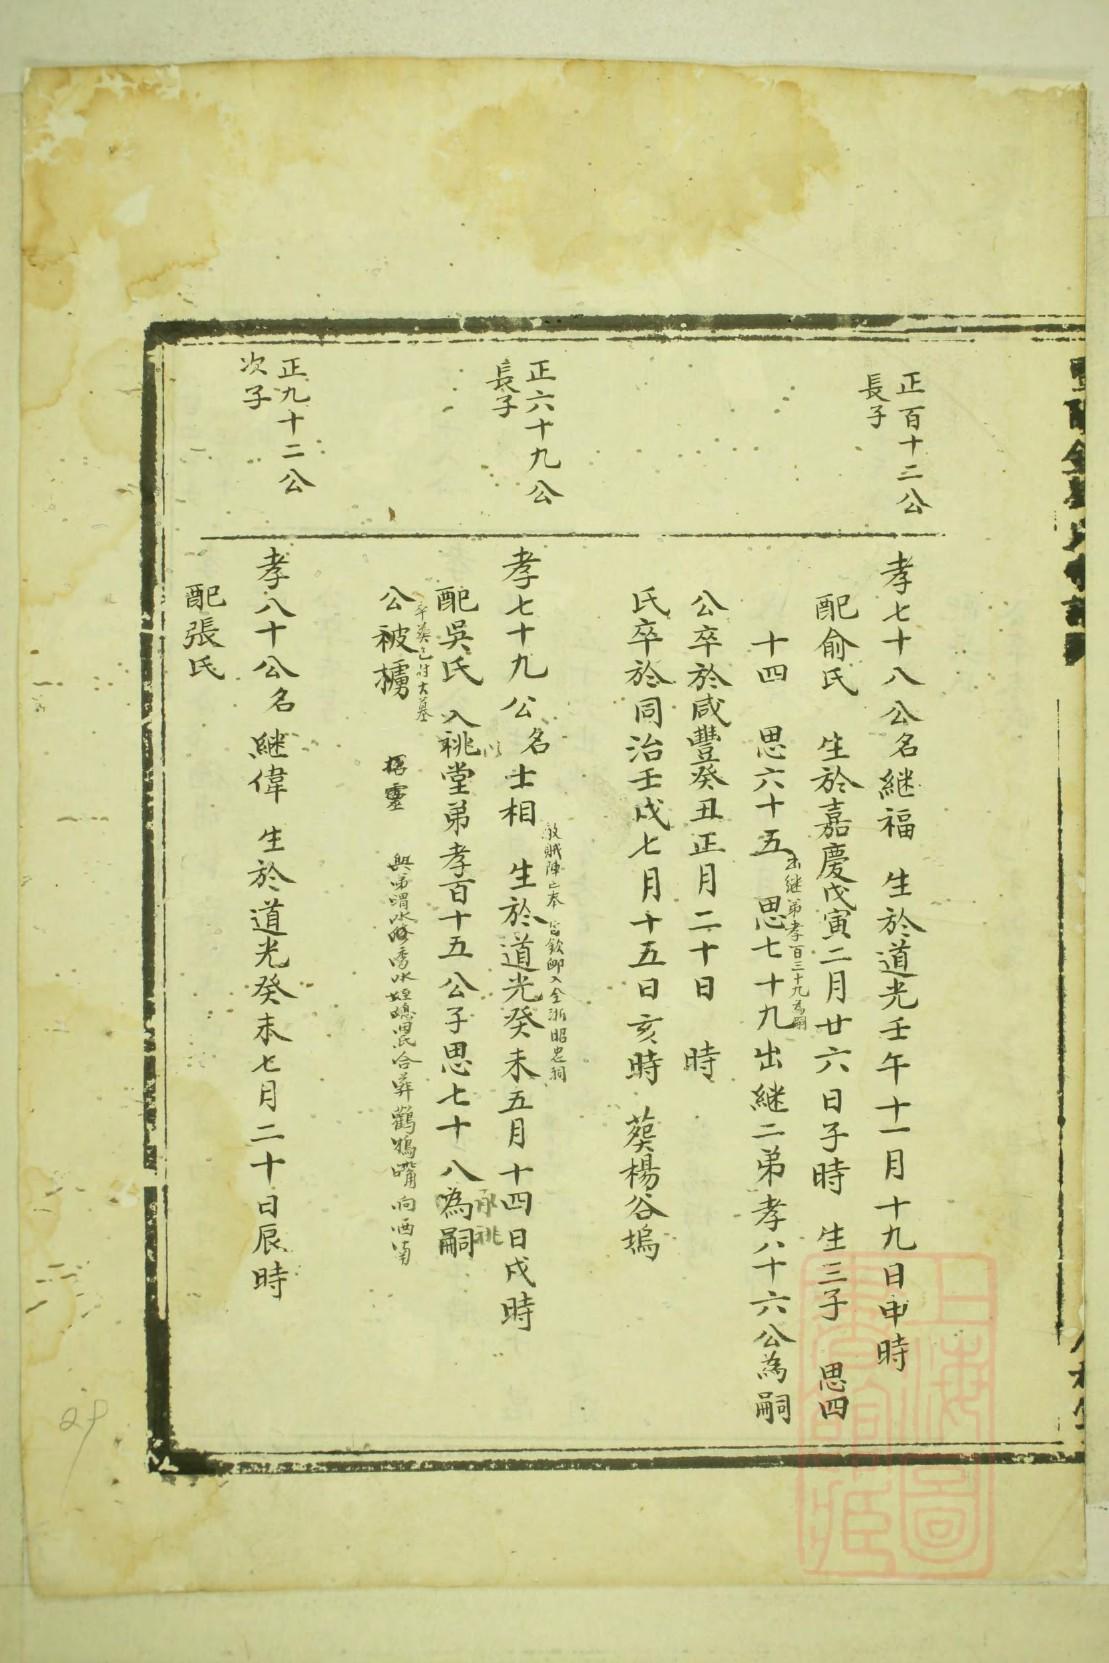 正百十二公
長子
孝七十八公名継福 生於道光壬午十一月十九日申時
配俞氏 生於嘉慶戊寅二月廿六日子時 生三子 思四
十四 思六十五 思七十九出継二弟孝八十六公為嗣
出継弟孝百三十九為嗣
公卒於咸豐癸丑正月二十日 時
氏卒於同治壬戌七月十五日亥時 葬楊谷塢
正六十九公
長子
孝七十九公名士相 生於道光癸未五月十四日戌時
殺賊陣亡奉旨欽卹入全浙昭忠祠
配吳氏 入祧堂弟孝百十五公子思七十八為嗣
以 承祧
公被擄
招靈
正九十二公
次子
孝八十公名継偉 生於道光癸未七月二十日辰時
配張氏
上海圖書館藏
29